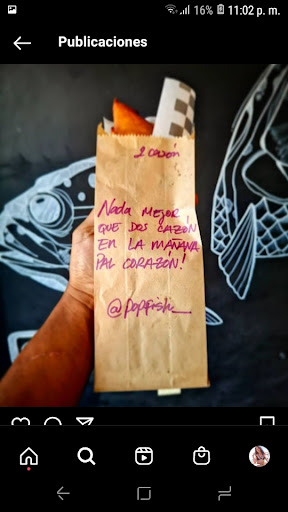 16% 11:02 p. m.
Publicaciones
2 cazón
Nada mejor
que dos cazón
en la mañana
pal corazón!
@popfish_